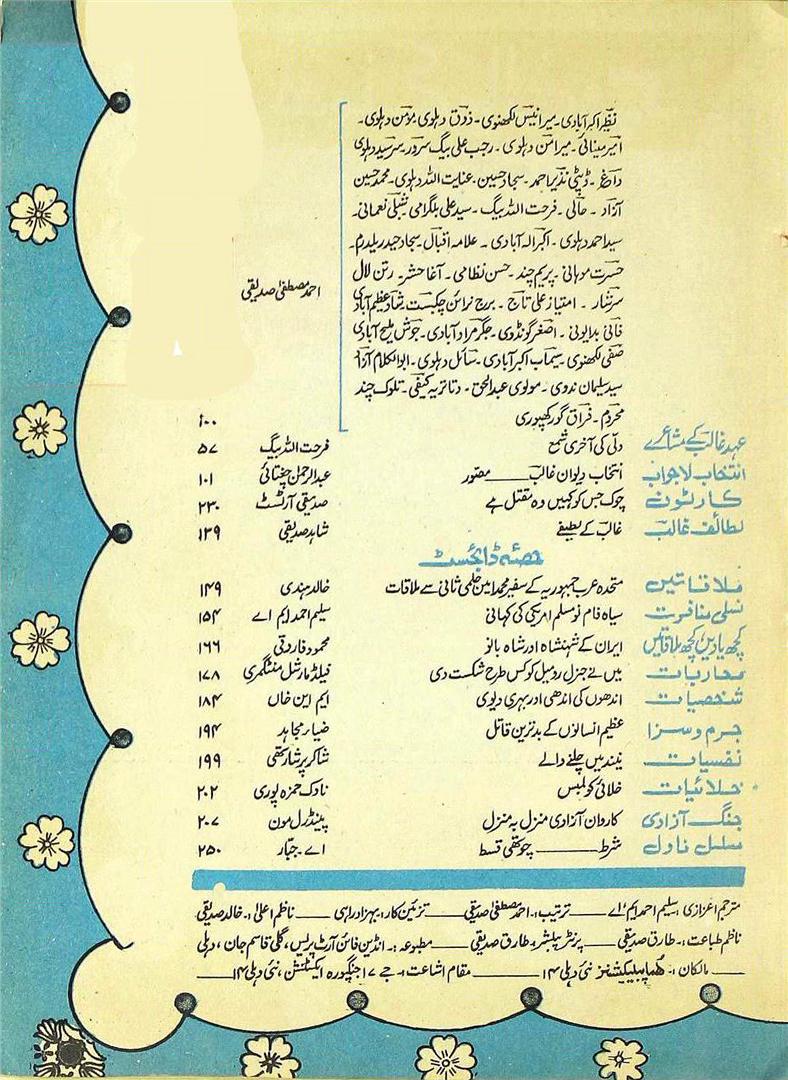 نظیر اکبر آبادی۔ میر انیس لکھنوی۔ ذوق دہلوی مومن دہلوی۔
امیر مینائی۔ میر امن دہلوی۔ رجب علی بیگ سرور۔ سر سید دہلوی
داغ۔ ڈپٹی نذیر احمد۔ سجاد حسین۔ عنایت اللہ دہلوی۔ محمد حسین
آزاد۔ حالی۔ فرحت اللہ بیگ۔ سید علی بلگرامی شبلی نعمانی۔
سید احمد دہلوی۔ اکبر الہ آبادی۔ علامہ اقبال۔ سجاد حیدر یلدرم۔
حسرت موہانی۔ پریم چند۔ حسن نظامی۔ آغا حشر۔ رتن لال
احمد مصطفیٰ صدیقی
سرشار۔ امتیاز علی تاج۔ برج نرائن چکبست شاد عظیم آبادی
فانی بدایونی۔ اصغر گونڈوی۔ جگر مراد آبادی۔ جوش ملیح آبادی
صفی لکھنوی۔ سیماب اکبر آبادی۔ سائل دہلوی۔ ابوالکلام آزاد
سید سلیمان ندوی۔ مولوی عبدالحق۔ دتاتریہ کیفی۔ تلوک چند
محروم۔ فراق گورکھپوری ۱۰۰
عہد غالب کے مشاعرے دلی کی آخری شمع فرحت اللہ بیگ ۵۷
انتخاب لاجواب انتخاب دیوان غالب ــــ مصور عبدالرحمٰن چغتائی ۱۰۱
کارٹون چوک جس کو کہیں وہ مقتل ہے صدیقی آرٹسٹ ۲۳۰
لطائف غالب غالب کے لطیفے شاہد صدیقی ۱۳۹
حصّہ ڈائجسٹ
ملاقاتیں متحدہ عرب جمہوریہ کے سفیر محمد امین حلمی ثانی سے ملاقات خالد ہندی ۱۴۹
نسلی منافرت سیاہ فام نو مسلم امریکی کی کہانی سلیم احمد ایم اے ۱۵۴
کچھ یادیں کچھ ملاقاتیں ایران کے شہنشاہ اور شاہ بانو محمود فاروقی ۱۶۶
محاربات میں نے جنرل رومیل کو کس طرح شکست دی فیلڈ مارشل منٹگمری ۱۷۸
شخصیات اندھوں کی اندھی اور بہری دیوی ایم این خاں ۱۸۴
جرم و سزا عظیم انسانوں کے بدترین قاتل ضیاء مجاہد ۱۹۴
نفسیات نیند میں چلنے والے شاکر پرشارتھی ۱۹۹
خلائیات خلائی کولمبس ناوک حمزہ پوری ۲۰۲
جنگ آزادی کاروان آزادی منزل بہ منزل پینڈرل مون ۲۰۷
مسلسل ناول شرط ــــ چوتھی قسط اے۔ جبّار ۲۵۰
مترجم اعزازی: سلیم احمد ایم اے ــــ ترتیب:۔ احمد مصطفیٰ صدیقی ــــ تزئین کار: بہزاد راہی ــــ ناظم اعلیٰ:۔ خالد صدیقی
ناظم طباعت:۔ طارق صدیقی ــــ پرنٹر پبلشر: طارق صدیقی ــــ مطبوعہ:۔ انڈین فائن آرٹ پریس، گلی قاسم جان، دہلی
ــــ مالکان:۔ ھُما پبلیکیشنز نئی دہلی ۱۴ ــــ مقام اشاعت:۔ جے ۱۷ جنگپورہ ایکسٹنشن، نئی دہلی ۱۴ ــــ